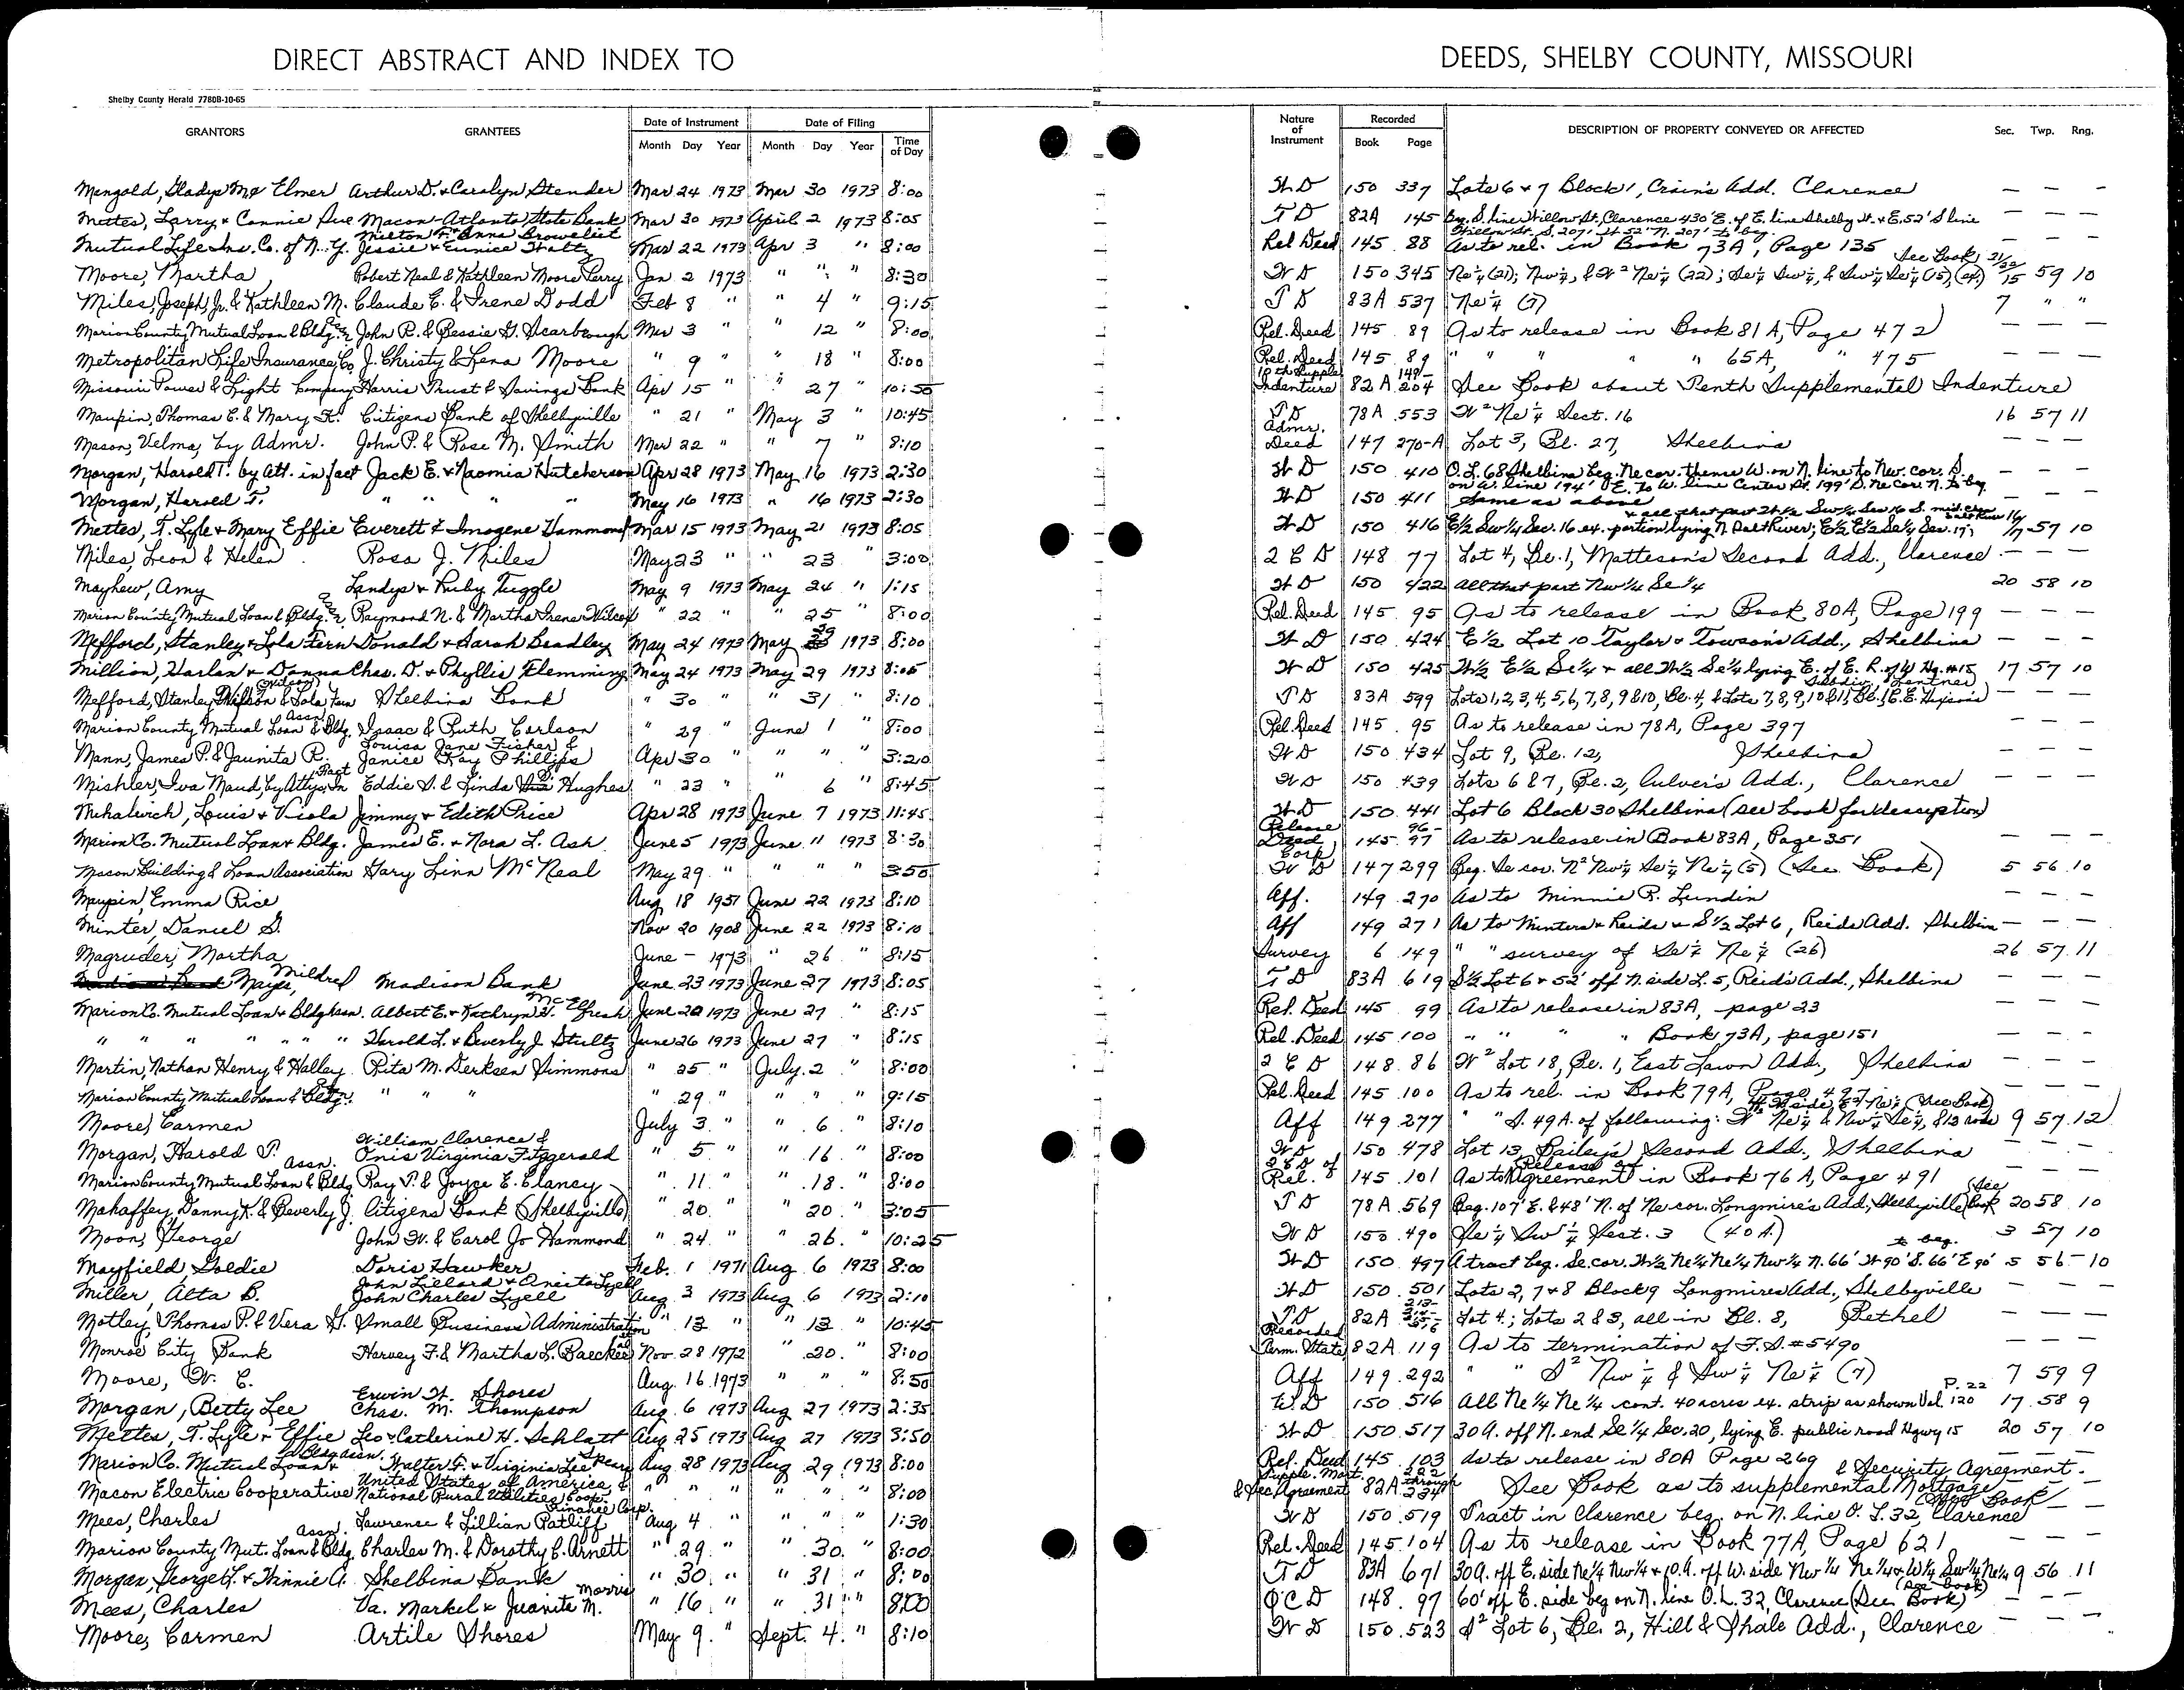 DIRECT ABSTRACT AND INDEX TO DEEDS, SHELBY COUNTY, MISSOURI
Shelby County Herald 7780B-10-65
GRANTORS GRANTEES Date of Instrument Date of Filing Time of Day Nature of Instrument Recorded DESCRIPTION OF PROPERTY CONVEYED OR AFFECTED Sec. Twp. Rng.
Month Day Year Month Day Year Book Page
Mangold, Gladys M & Elmer Arthur D. & Carolyn Stender Mar 24 1973 Mar 30 1973 8:00 W D 150 337 Lots 6 & 7 Block 1, Crain's Add. Clarence — — —
Mettes, Larry & Connie Sue Macon-Atlanta State Bank Mar 30 1973 April 2 1973 8:05 T D 82A 145 Bg. S. line Willow St, Clarence 430' E. of E. line Shelby St. & E. 52' S line Willow St. S. 207' W 52' N. 207' to beg. — — —
Mutual Life Ins. Co. of N. Y. Milton F. & Anna Jessie & Eunice Mar 22 1973 Apr 3 " 8:00 Rel Deed 145 88 As to rel. in Book 73A, Page 135 — — —
Moore, Martha Robert Neal & Kathleen Moore Perry Jan 2 1973 " " " 8:30 W D 150 345 Ne 1/4 (21); Nw 1/4, & W 2 Ne 1/4 (22); Se 1/4 Sw 1/4, & Sw 1/4 Se 1/4 (15) See Book 21/22/15 59 10
Miles, Joseph, Jr. & Kathleen M. Claude E. & Irene Dodd Feb 8 " " 4 " 9:15 T D 83A 537 Ne 1/4 (7) 7 " "
Marion County Mutual Loan & Bldg. John R. & Bessie G. Scarbrough Mar 3 " " 12 " 8:00 Rel. Deed 145 89 As to release in Book 81A, Page 472 — — —
Metropolitan Life Insurance Co J. Christy & Lena Moore " 9 " " 18 " 8:00 Rel. Deed 145 89 " " " " " 65A, " 475 — — —
Missouri Power & Light Company Harris Trust & Savings Bank Apr 15 " " 27 " 10:50 10th Supple Indenture 82A 149-204 See Book about Tenth Supplemental Indenture
Maupin, Thomas C. & Mary K. Citizens Bank of Shelbyville " 21 " May 3 " 10:45 T D 78A 553 W 2 Ne 1/4 Sect. 16 16 57 11
Mason, Velma, by Admr. John P. & Rose M. Smith Mar 22 " " 7 " 8:10 Admr. Deed 147 270-A Lot 3, Bl. 27, Shelbina — — —
Morgan, Harold T. by Att. in fact Jack E. & Naomia Hutcherson Apr 28 1973 May 16 1973 2:30 W D 150 410 O. L. 68 Shelbina beg. Ne cor. thence W. on N. line to Nw. cor. S. on W. line 194' E. to W. line Center St. 199' S. Ne cor. N. to beg — — —
Morgan, Harold T. " " " " May 16 1973 " 16 1973 2:30 W D 150 411 Same as above — — —
Mettes, T. Lyle & Mary Effie Everett & Imogene Hammond Mar 15 1973 May 21 1973 8:05 W D 150 416 E 1/2 Sw 1/4 Sec. 16 ex. portion lying N Salt River; E 1/2 E 1/2 Se 1/4 Sec. 17; & all that part W 1/2 Sw 1/4 Sec 16 S. mid. chan Salt River 16/17 57 10
Miles, Leon & Helen Rosa J. Miles May 23 " " 23 " 3:00 2 C D 148 77 Lot 4, Bl. 1, Matteson's Second Add., Clarence — — —
Mayhew, Amy Landys & Ruby Tuggle May 9 1973 May 24 " 1:15 W D 150 422 all that part Nw 1/4 Se 1/4 20 58 10
Marion County Mutual Loan & Bldg. Raymond N. & Martha Irene Wilcox " 22 " " 25 " 8:00 Rel. Deed 145 95 As to release in Book 80A, Page 199 — — —
Mefford, Stanley & Lola Fern Donald & Sarah Bradley May 24 1973 May 29 1973 8:00 W D 150 424 E 1/2 Lot 10 Taylor & Towson's Add., Shelbina — — —
Million, Harlan & Donna Chas. D. & Phyllis Flemming May 24 1973 May 29 1973 8:05 W D 150 425 W 1/2 E 1/2 Se 1/4 & all W 1/2 Se 1/4 lying E. of E. R. of W Hg. #15 17 57 10
Mefford, Stanley & Lola Fern Shelbina Bank " 30 " " 31 " 8:10 T D 83A 599 Lots 1, 2, 3, 4, 5, 6, 7, 8, 9 & 10, Bl. 4, & Lots 7, 8, 9, 10 & 11, Bl. 1, C. E. Hixson's Subdiv. Lentner — — —
Marion County Mutual Loan & Bldg. Assn. Isaac & Ruth Carlson " 29 " June 1 " 8:00 Rel. Deed 145 95 As to release in 78A, Page 397 — — —
Mann, James P. & Jaunita R. Louisa Jane Fisher & Janice Kay Phillips Apr 30 " " " " 3:20 W D 150 434 Lot 9, Bl. 12, Shelbina — — —
Mishler, Iva Maud, by Atty. In Fact Eddie S. & Linda D. Hughes " 23 " " 6 " 8:45 W D 150 439 Lots 6 & 7, Bl. 2, Culver's Add., Clarence — — —
Mihalevich, Louis & Viola Jimmy & Edith Price Apr 28 1973 June 7 1973 11:45 W D 150 441 Lot 6 Block 30 Shelbina (see book for description)
Marion Co. Mutual Loan & Bldg. James E. & Nora L. Ash June 5 1973 June 11 1973 8:30 Release Deed 145 96-97 As to release in Book 83A, Page 351 — — —
Macon Building & Loan Association Gary Linn McNeal May 29 " " " " 3:50 Corp W D 147 299 Beg. Se cor. N 2 Nw 1/4 Se 1/4 Ne 1/4 (5) (See Book) 5 56 10
Maupin, Emma Rice Aug 18 1951 June 22 1973 8:10 Aff. 149 270 As to Minnie R. Lundin — — —
Minter, Daniel S. Nov 20 1908 June 22 1973 8:10 Aff 149 271 As to Minters & Reids & S 1/2 Lot 6, Reids Add. Shelbina — — —
Magruder, Martha June — 1973 " 26 " 8:15 Survey 6 149 " " survey of Se 1/4 Ne 1/4 (26) 26 57 11
Mayes, Mildred Madison Bank June 23 1973 June 27 1973 8:05 T D 83A 619 S 1/2 Lot 6 & 52' off N. side L. 5, Reid's Add., Shelbina — — —
Marion Co. Mutual Loan & Bldg Assn. Albert E. & Kathryn H. McElfresh June 20 1973 June 27 " 8:15 Rel. Deed 145 99 As to release in 83A, page 23 — — —
" " " " " " " Harold L. & Beverly J. Stultz June 26 1973 June 27 " 8:15 Rel. Deed 145 100 " " " " Book 73A, page 151 — — —
Martin, Nathan Henry & Halley Rita M. Derksen Simmons " 25 " July 2 " 8:00 2 C D 148 86 W 2 Lot 18, Bl. 1, East Lawn Add., Shelbina — — —
Marion County Mutual Loan & Bldg. " " " " 29 " " " " 9:15 Rel. Deed 145 100 As to rel. in Book 79A, Page 497 — — —
Moore, Carmen July 3 " " 6 " 8:10 Aff 149 277 " " S. 49A. of following: Ne 1/4 & Nw 1/4 Se 1/4, (See Book) 9 57 12
Morgan, Harold T. William Clarence & Onis Virginia Fitzgerald " 5 " " 16 " 8:00 W D 150 478 Lot 13, Bailey's Second Add., Shelbina — — —
Marion County Mutual Loan & Bldg Assn. Ray P. & Joyce E. Clancy " 11 " " 18 " 8:00 Rel. 145 101 As to Release of Agreement in Book 76A, Page 491 — — —
Mahaffey, Danny K. & Beverly J. Citizens Bank (Shelbyville) " 20 " " 20 " 3:05 T D 78A 569 Beg. 107' E. & 48' N. of Ne cor. Longmire's Add, Shelbyville (See Book 20 58 10
Moon, George John W. & Carol Jo Hammond " 24 " " 26 " 10:25 W D 150 490 Se 1/4 Sw 1/4 Sect. 3 (40A.) 3 57 10
Mayfield, Goldie Doris Hawker Feb. 1 1971 Aug 6 1973 8:00 W D 150 497 A tract beg. Se. cor. W 1/2 Ne 1/4 Ne 1/4 Nw 1/4 N. 66' W 90' S. 66' E 90' to beg. 5 56 10
Miller, Alta B. John Lillard & Anita Lyell John Charles Lyell Aug 3 1973 Aug 6 1973 2:10 W D 150 501 Lots 2, 7 & 8 Block 9 Longmires Add., Shelbyville — — —
Motley, Thomas P. & Vera H. Small Business Administration " 13 " " 13 " 10:45 T D 82A Lot 4; Lots 2 & 3, all in Bl. 8, Bethel — — —
Monroe City Bank Harvey F. & Martha L. Baecker Nov. 28 1972 " 20 " 8:00 Recorded Term. State 82A 119 As to termination of F. S. #5490 — — —
Moore, W. C. Aug. 16 1973 " " " 8:50 Aff 149 292 " " S 2 Nw 1/4 & Sw 1/4 Ne 1/4 (7) 7 59 9
Morgan, Betty Lee Erwin W. Shores Chas. M. Thompson Aug 6 1973 Aug 27 1973 2:35 W. D 150 516 All Ne 1/4 Ne 1/4 cont. 40 acres ex. strip as shown Vol. 120 P. 22 17 58 9
Mettes, T. Lyle & Effie Leo & Catherine H. Schlatt Aug 25 1973 Aug 27 1973 3:50 W D 150 517 30 A. off N. end Se 1/4 Sec. 20, lying E. public road Hgwy 15 20 57 10
Marion Co. Mutual Loan & Bldg Assn. Walter F. & Virginia Lee Spears Aug 28 1973 Aug 29 1973 8:00 Rel. Deed 145 103 As to release in 80A Page 269 — — —
Macon Electric Cooperative United States of America & National Rural Utilities Coop. Finance Corp. " " " " " " 8:00 Supple. Mort. & Sec. Agreement 82A 222 through 234 See Book as to supplemental Mortgage & Security Agreement.
Mees, Charles Lawrence & Lillian Ratliff Aug 4 " " " " 1:30 W D 150 519 Tract in Clarence beg. on N. line O. L. 32, Clarence See Book
Marion County Mut. Loan & Bldg. Assn. Charles M. & Dorothy C. Arnett " 29 " " 30 " 8:00 Rel. Deed 145 104 As to release in Book 77A, Page 621 — — —
Morgan, George L. & Winnie A. Shelbina Bank " 30 " " 31 " 8:00 T D 83A 671 30A. off E. side Ne 1/4 Nw 1/4 & 10 A. off W. side Nw 1/4 Ne 1/4 & W 1/4 Sw 1/4 Ne 1/4 (See book) 9 56 11
Mees, Charles Va. Markel & Juanita M. Morris " 16 " " 31 " 8:00 Q C D 148 97 60' off E. side beg on N. line O. L. 32, Clarence (See Book) — — —
Moore, Carmen Artile Shores May 9 " Sept. 4 " 8:10 W D 150 523 S 2 Lot 6, Bl. 2, Hill & Shale Add., Clarence — — —